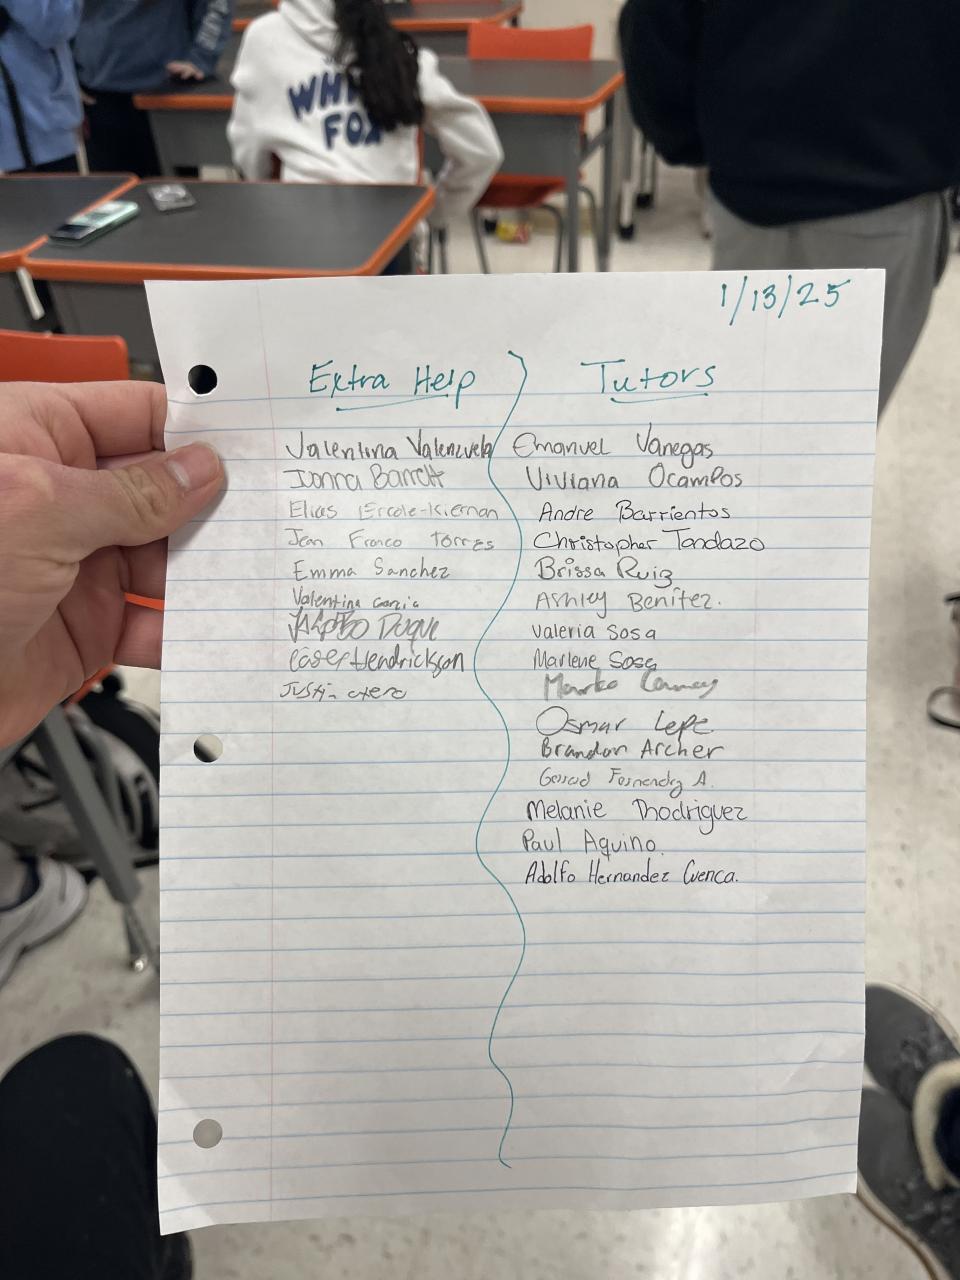 WH
FOX
1/13/25
Extra Help
Valentina Valenzuela
Barrett
Elias Ercole-Kiernan
Jean Franco Torres
Emma Sanchez
Valentina Garcia
Duque
Casey Hendrickson
Justin
Tutors
Emanuel Vanegas
Viviana Ocampos
Andre Barrientos
Christopher Tandazo
Brissa Ruiz
Ashley Benitez.
Valeria Sosa
Marlene Sosa
Marko
Osmar Lepe
Brandon Archer
A.
Melanie Rhodriguez
Paul Aquino.
Adolfo Hernandez Cuenca.